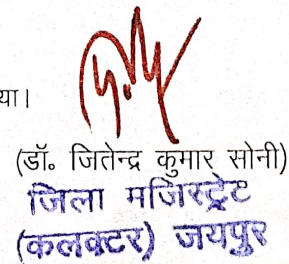 या।
(डॉ० जितेन्द्र कुमार सोनी)
जिला मजिस्ट्रेट
(कलक्टर) जयपुर